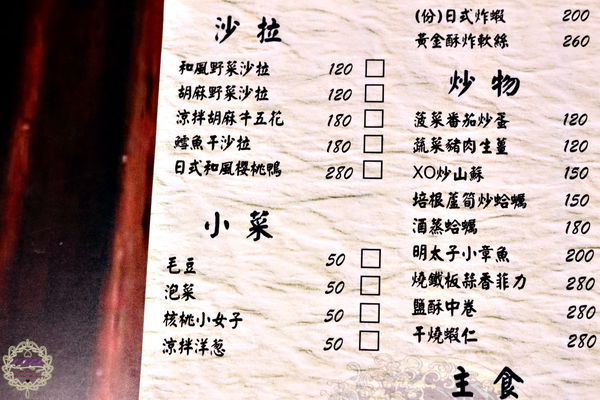 沙拉
和風野菜沙拉 120
胡麻野菜沙拉 120
涼拌胡麻牛五花 180
鱈魚干沙拉 180
日式和風櫻桃鴨 280
小菜
毛豆 50
泡菜 50
核桃小女子 50
涼拌洋蔥 50
(份)日式炸蝦 200
黃金酥炸軟絲 260
炒物
菠菜番茄炒蛋 120
蔬菜豬肉生薑 120
XO炒山蘇 150
培根蘆筍炒蛤蠣 150
酒蒸蛤蠣 180
明太子小章魚 200
燒鐵板蒜香菲力 280
鹽酥中卷 280
干燒蝦仁 280
主食